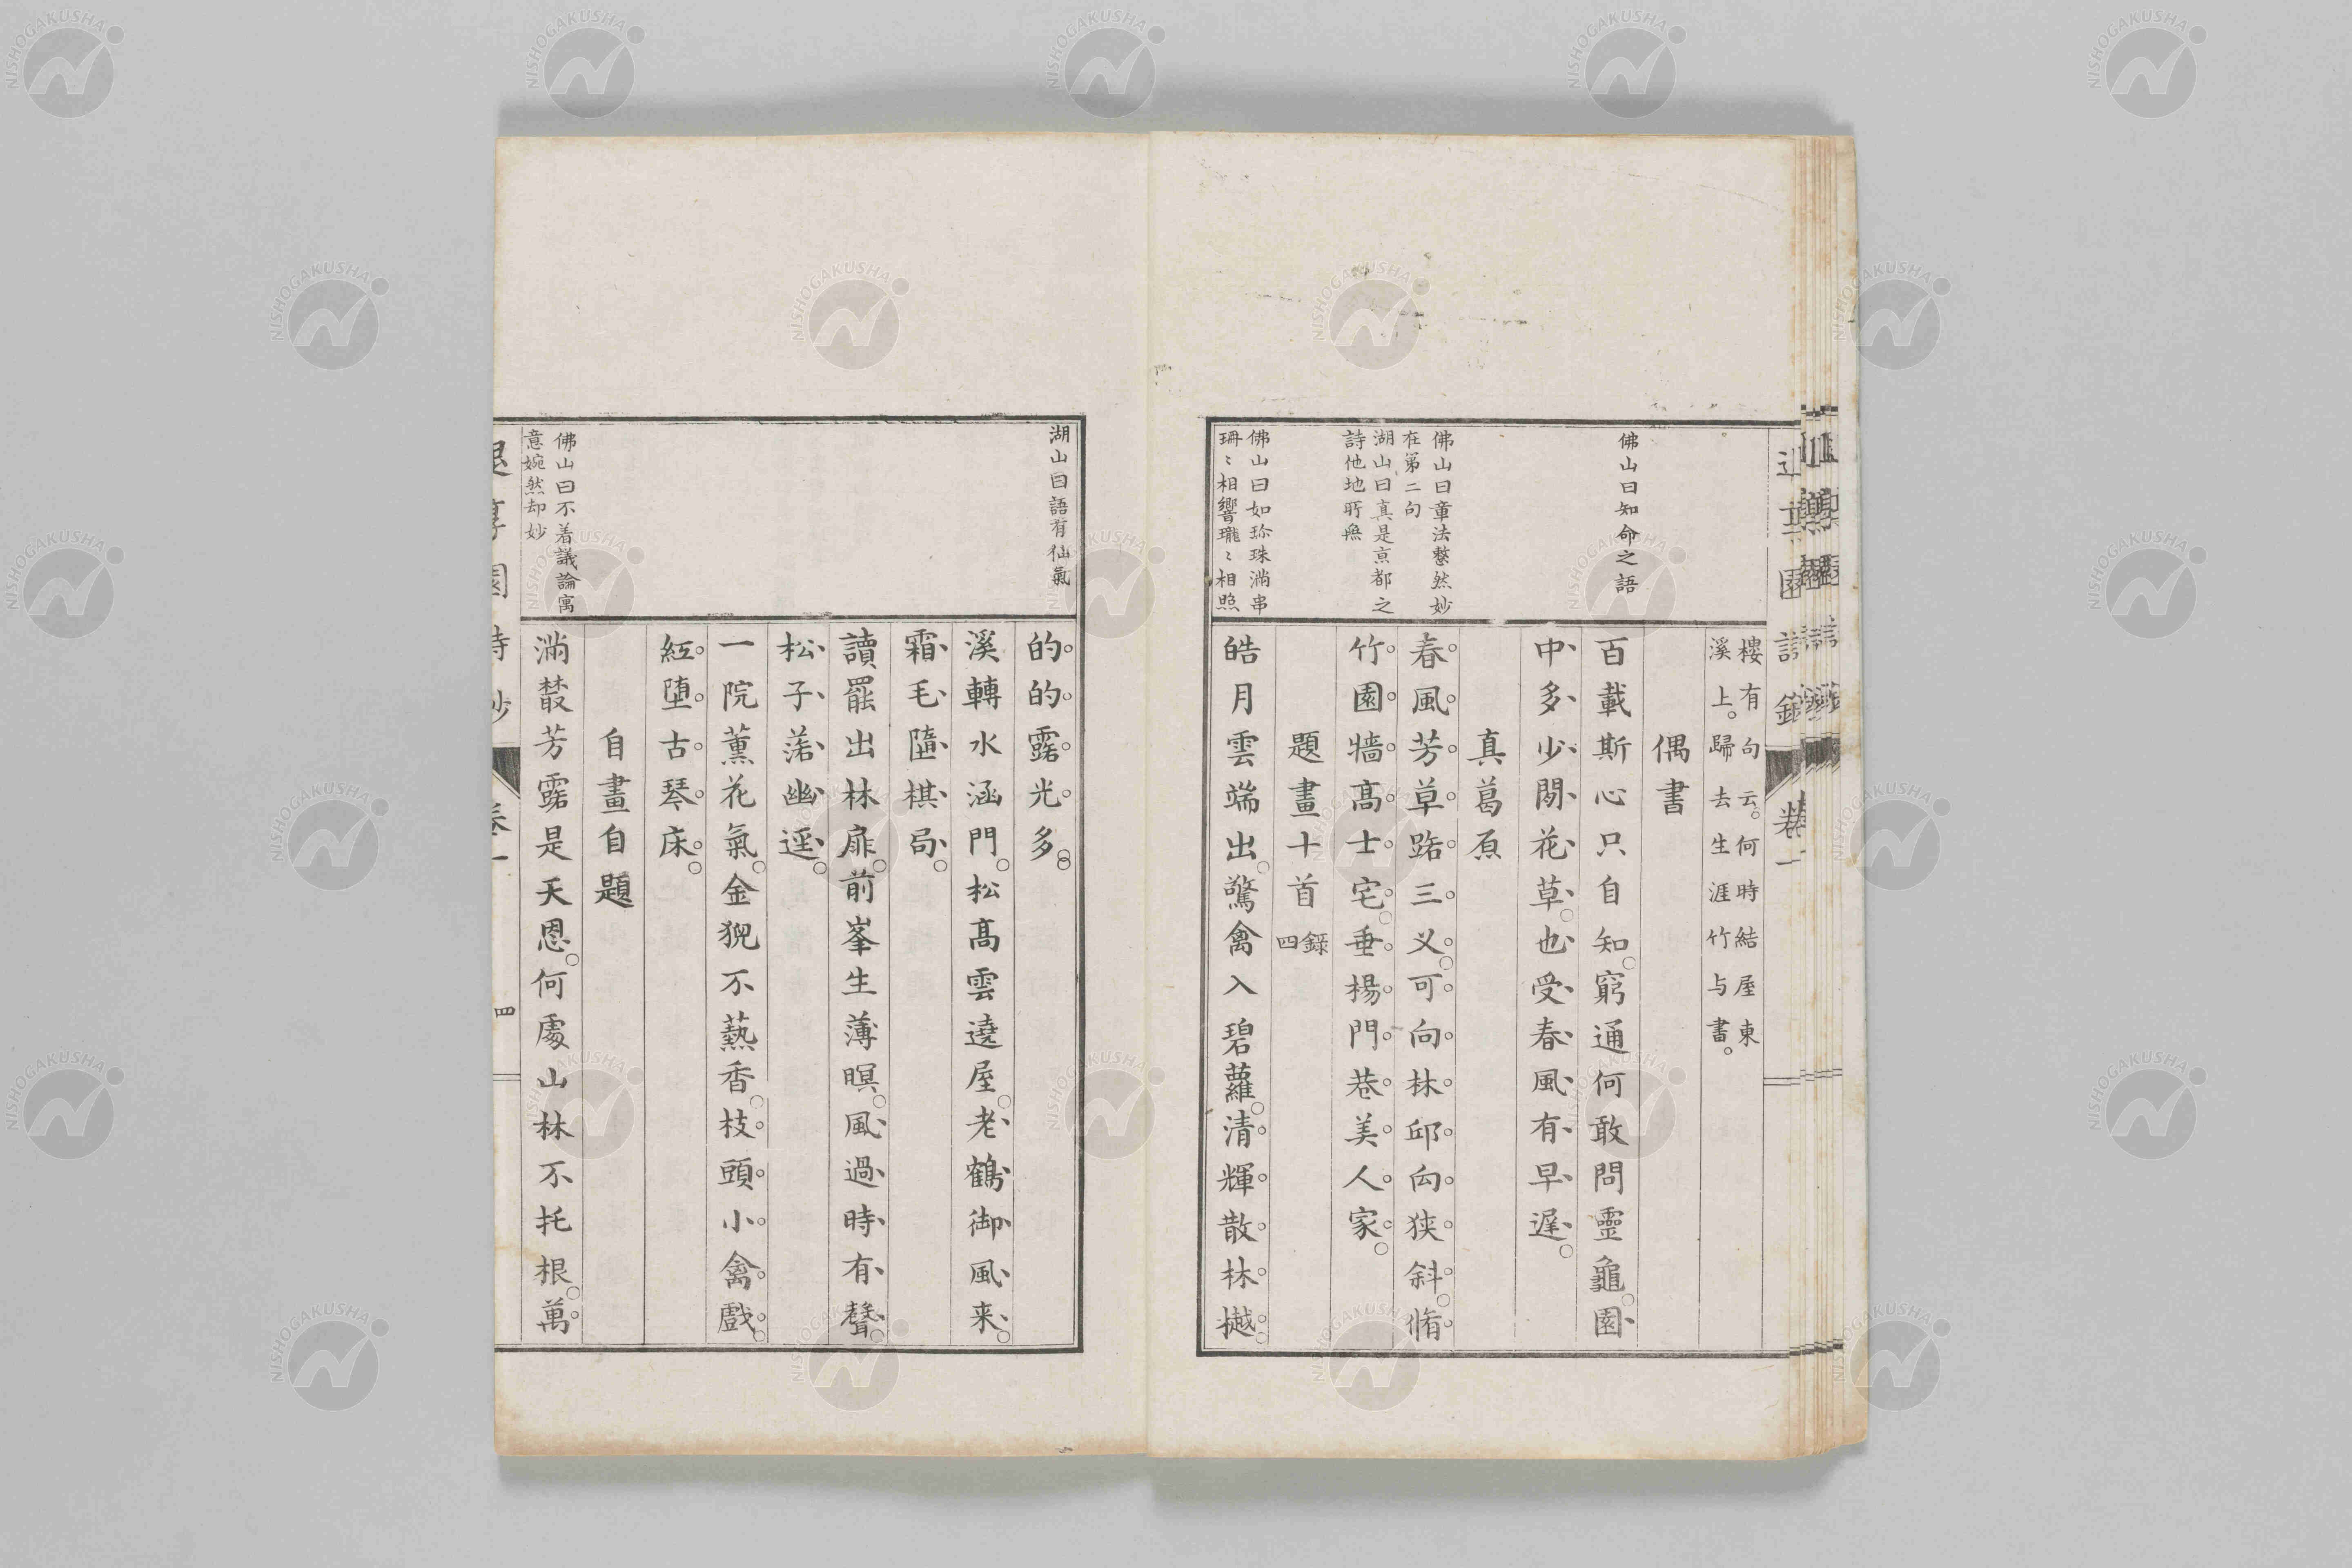 樓有句云何時結屋東
溪上歸去生涯竹与書
偶書
百載斯心只自知窮通何敢問靈龜園
中多少閒花草也受春風有早遲
真葛原
春風芳草路三义可向林邱向狭斜脩
竹園牆髙士宅垂楊門巷美人家
題畫十首
錄四
皓月雲端出驚禽入碧蘿清輝散林樾
佛山曰知命之語
佛山曰章法整然妙
在第二句
湖山曰真是京都之
詩他地所無
佛山曰如珍珠滿串
珊〻相響瓏〻相照
的的露光多
溪轉水涵門松髙雲遶屋老鶴御風来
霜毛墮棋局
讀罷出林扉前峯生薄暝風過時有聲
松子落幽逕
一院薰花氣金猊不爇香枝頭小禽戲
紅墮古琴床
自畫自題
滿叢芳露是天恩何處山林不托根萬
湖山曰語有仙氣
佛山曰不着議論寓
意婉然却妙
退享園詩鈔
卷一
四
NISHOGAKUSHA